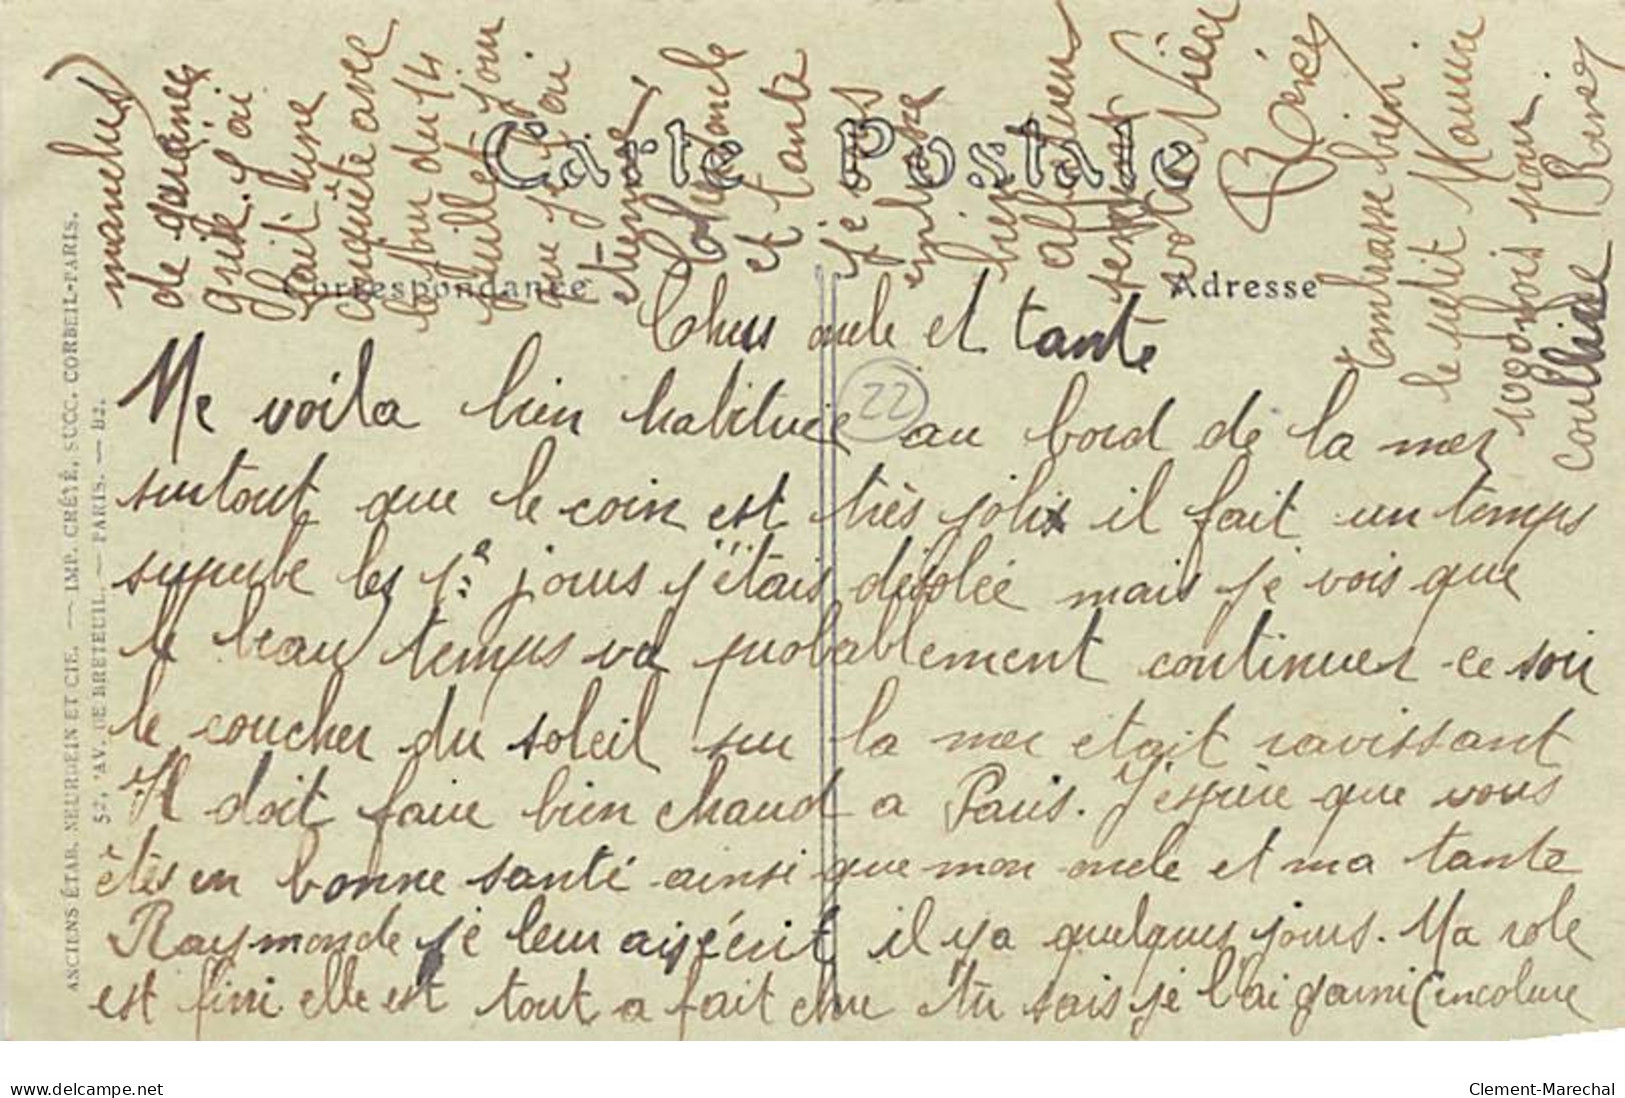 Carte Postale
Correspondance
Adresse
Chers oncle et tante
Me voila bien habituée au bord de la mer
surtout que le coin est très joli il fait un temps
superbe les 1rs jours j'étais désolée mais je vois que
le beau temps va probablement continuer ce soir
le coucher du soleil sur la mer etait ravissant
Il doit faire bien chaud a Paris. J'espère que vous
êtes en bonne santé ainsi que mon oncle et ma tante
Raymonde je leur ai écrit il y a quelques jours. Ma robe
est fini elle est tout a fait chic tu sais je l'ai garni (encolure
manches)
de
J'ai
fait une
conquête avec
le bon du 14
juillet jour
ou je l'ai
etrenné
Cher oncle
et tante
je vous
embrasse
bien
affectueu
sement
votre Nièce
Renée
Embrasse bien
le petit Maurice
1000 fois pour
22
ANCIENS ÉTAB. NEURDEIN ET CIE. — IMP. CRÉTÉ, SUCC. CORBEIL-PARIS.
52, AV. DE BRETEUIL. — PARIS. — B2.
www.delcampe.net
Clement-Marechal